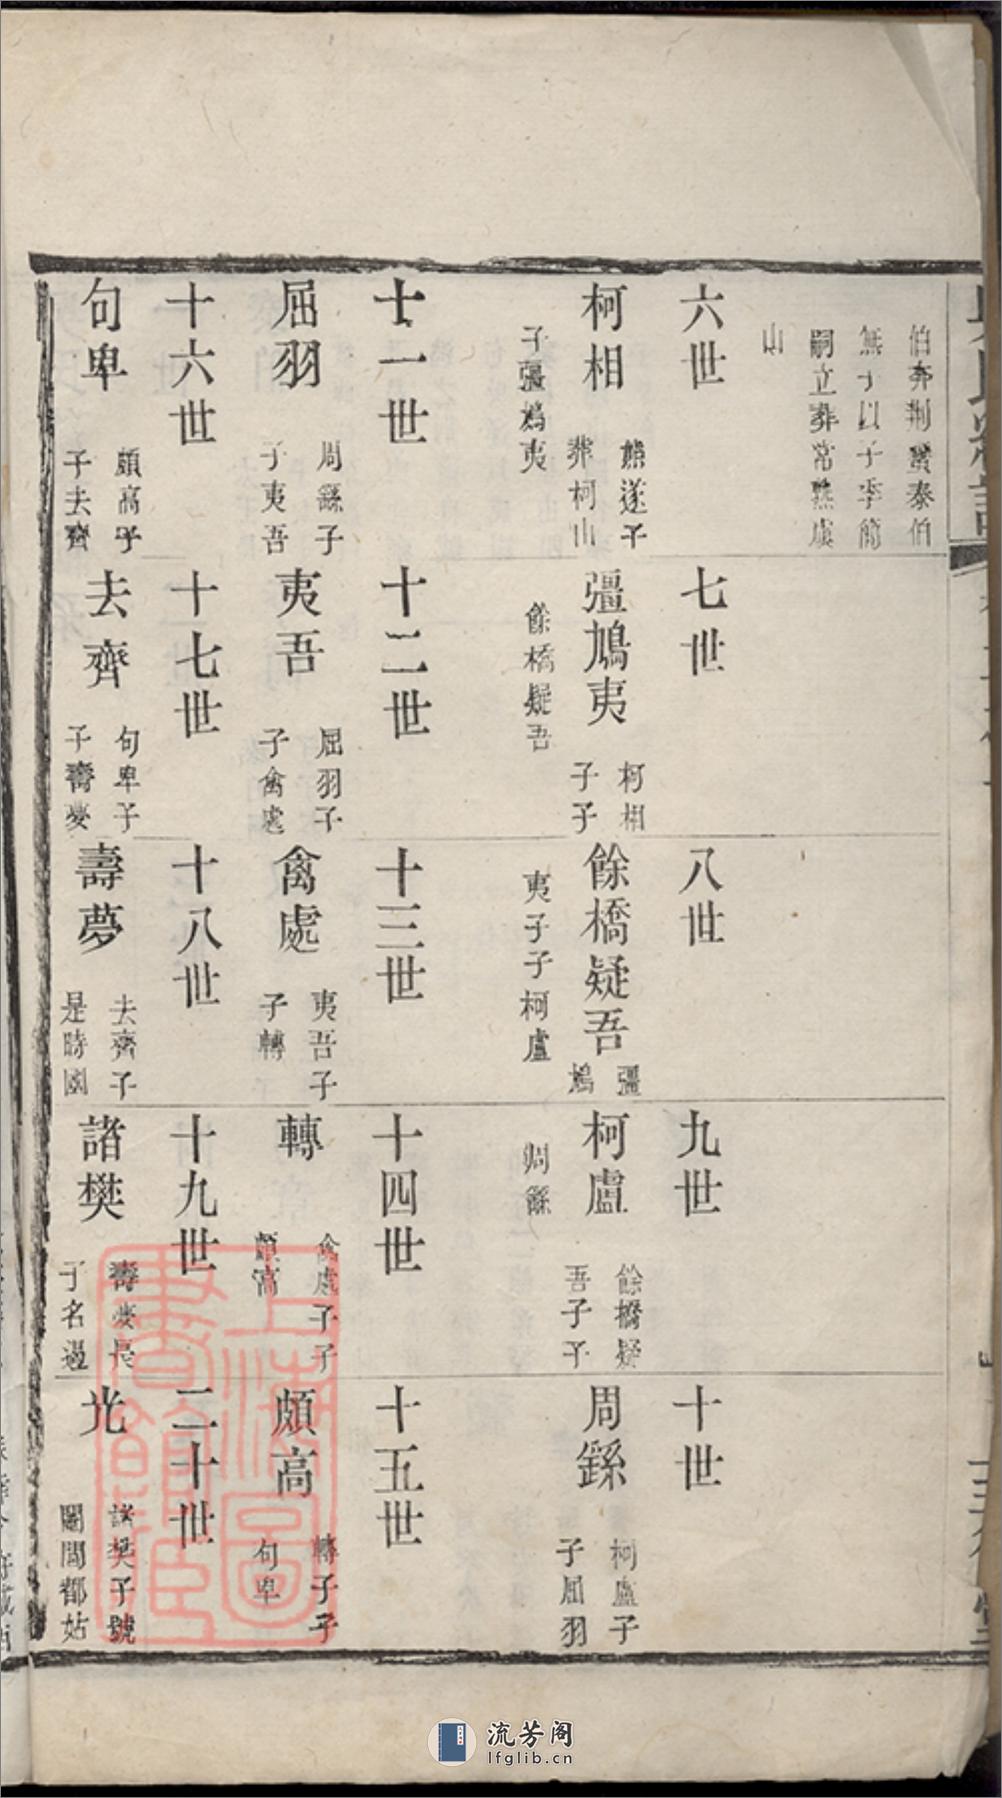 伯奔荆蠻泰伯
無子以子季簡
嗣立葬常熟虞
山
六世
柯相
熊遂子
葬柯山
子彊鳩夷
七世
彊鳩夷
柯相
子子
餘橋疑吾
八世
餘橋疑吾
彊
鳩
夷子子柯盧
九世
柯盧
餘橋疑
吾子子
周繇
十世
周繇
柯盧子
子屈羽
十一世
屈羽
周繇子
子夷吾
十二世
夷吾
屈羽子
子禽處
十三世
禽處
夷吾子
子轉
十四世
轉
禽處子子
頗高
十五世
頗高
轉子子
句卑
十六世
句卑
頗高子
子去齊
十七世
去齊
句卑子
子壽夢
十八世
壽夢
去齊子
是時國
十九世
諸樊
壽夢長
子名遏
二十世
光
諸樊子號
闔閭都姑
上海圖書館藏
流芳阁
lfglib.cn